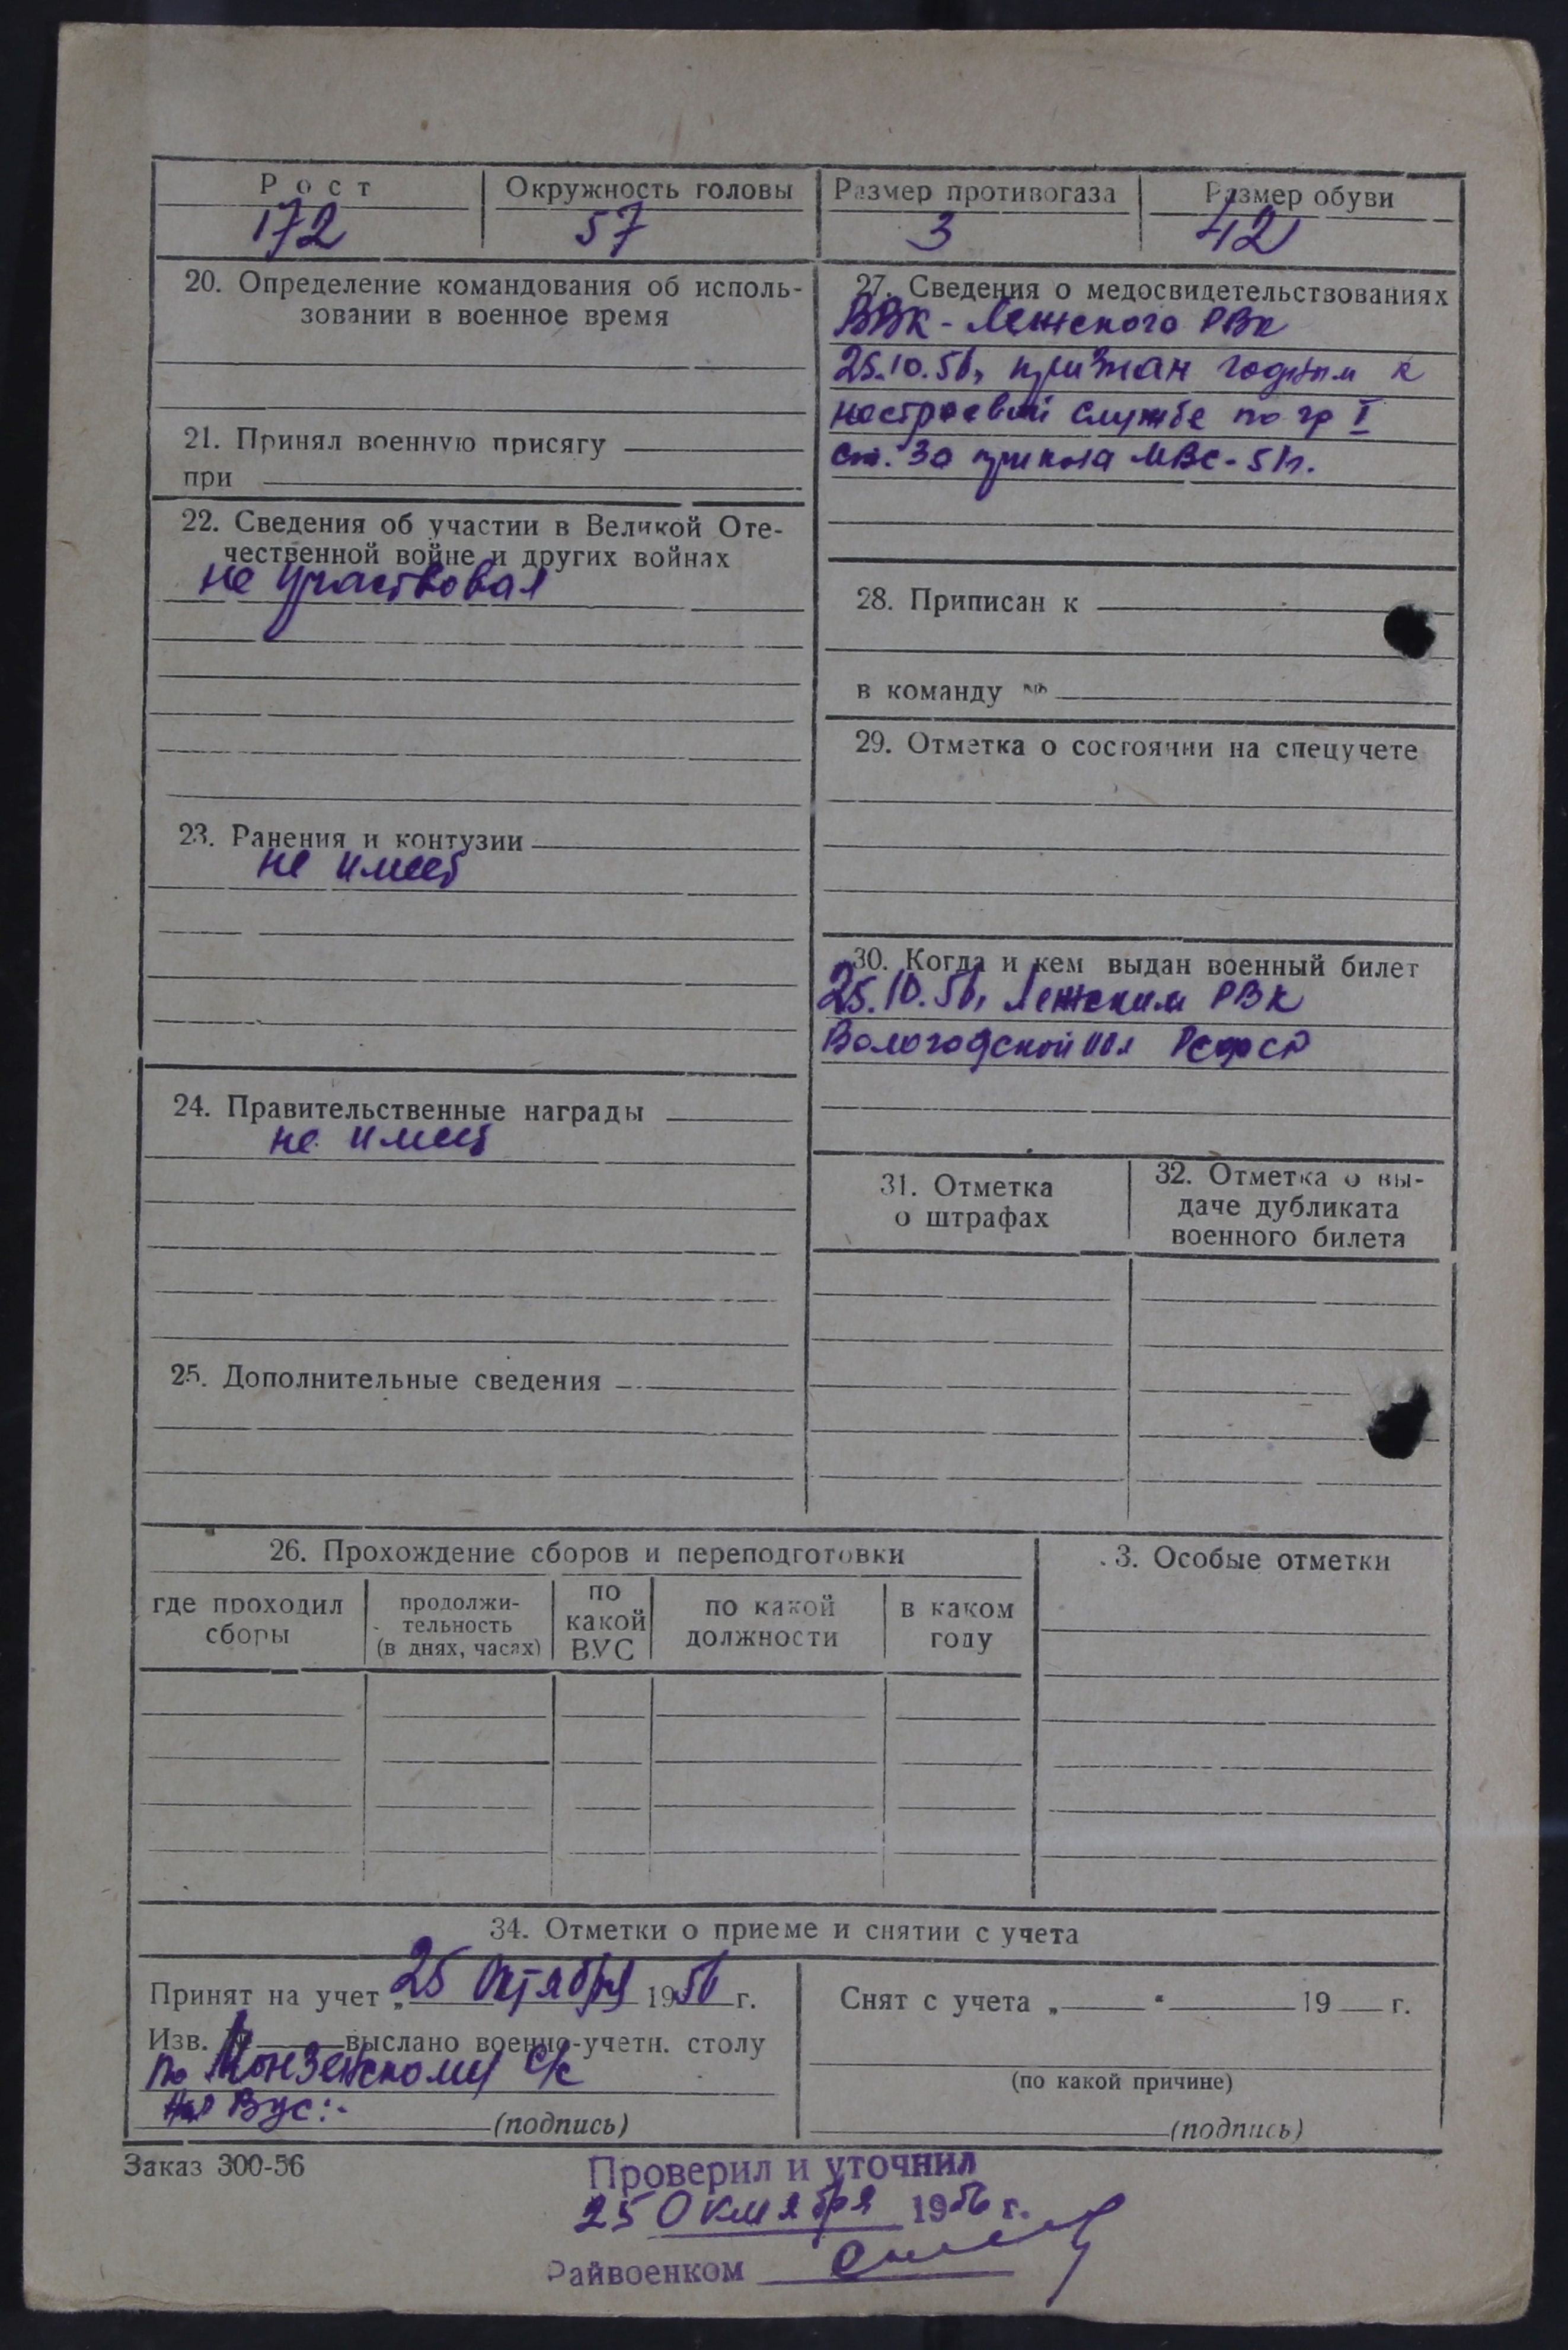 Рост
Окружность головы
Размер противогаза
Размер обуви
172
57
3
42
20. Определение командования об исполь-
зовании в военное время
21. Принял военную присягу
при
22. Сведения об участии в Великой Оте-
чественной войне и других войнах
не участвовал
23. Ранения и контузии
не имеет
24. Правительственные награды
не имеет
25. Дополнительные сведения
27. Сведения о медосвидетельствованиях
ВВК - Лежского РВК
25.10.56, признан годным к
нестроевой службе по гр I
ст. 3а приказа МВС-51г.
28. Приписан к
в команду №
29. Отметка о состоянии на спецучете
30. Когда и кем выдан военный билет
25.10.56, Лежским РВК
Вологодской обл РСФСР
31. Отметка
о штрафах
32. Отметка о вы-
даче дубликата
военного билета
26. Прохождение сборов и переподготовки
где проходил
сборы
продолжи-
тельность
(в днях, часах)
по
какой
ВУС
по какой
должности
в каком
году
3. Особые отметки
34. Отметки о приеме и снятии с учета
Принят на учет „25 Октября 1956 г.
Изв. выслано военно-учетн. столу
по Монзенскому с/с
ВУС:-
(подпись)
Снят с учета „ “ 19 г.
(по какой причине)
(подпись)
Заказ 300-56
Проверил и уточнил
25 Октября 1956 г.
Райвоенком